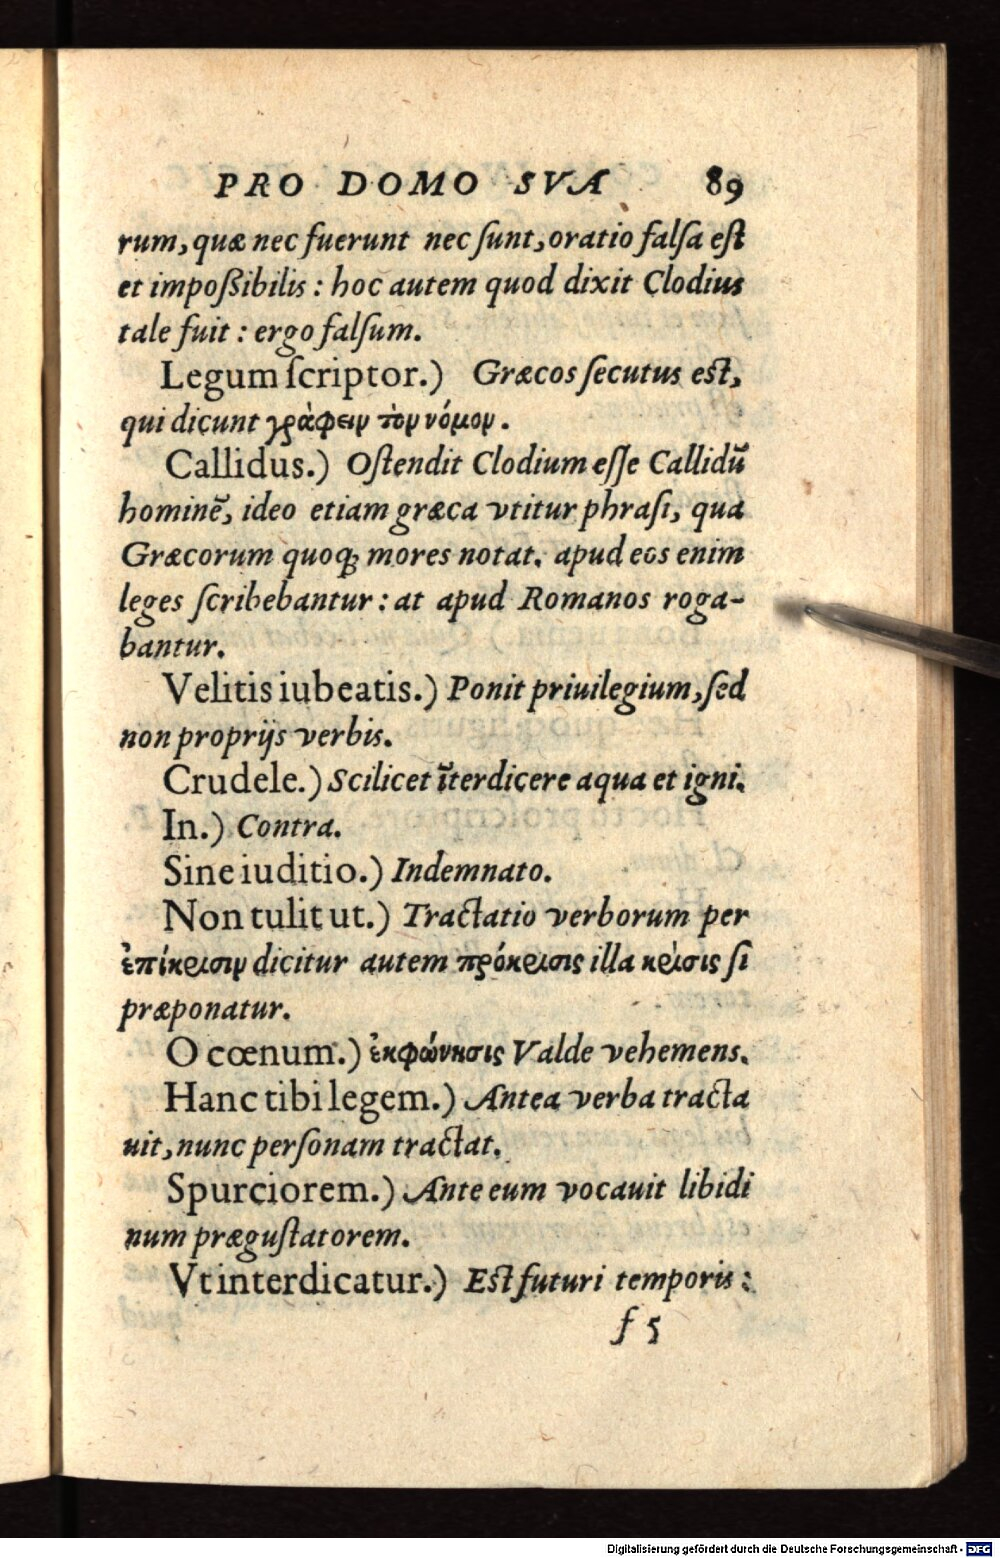 PRO DOMO SVA 89
rum, quæ nec fuerunt nec ſunt, oratio falſa eſt
et impoßibilis : hoc autem quod dixit Clodius
tale fuit : ergo falſum.
Legum ſcriptor.) Græcos ſecutus eſt,
qui dicunt γράφειν τὸν νόμον.
Callidus.) Oſtendit Clodium eſſe Callidū
hominē, ideo etiam græca vtitur phraſi, qua
Græcorum quoq; mores notat. apud eos enim
leges ſcribebantur : at apud Romanos roga-
bantur.
Velitis iubeatis.) Ponit priuilegium, ſed
non proprijs verbis.
Crudele.) Scilicet īterdicere aqua et igni.
In.) Contra.
Sine iuditio.) Indemnato.
Non tulit ut.) Tractatio verborum per
ἐπίκρισιν dicitur autem πρόκρισις illa κρίσις ſi
præponatur.
O cœnum.) ἐκφώνησις Valde vehemens.
Hanc tibi legem.) Antea verba tracta
uit, nunc perſonam tractat.
Spurciorem.) Ante eum vocauit libidi
num præguſtatorem.
Vt interdicatur.) Eſt futuri temporis :
f 5
Digitalisierung gefördert durch die Deutsche Forschungsgemeinschaft - DFG